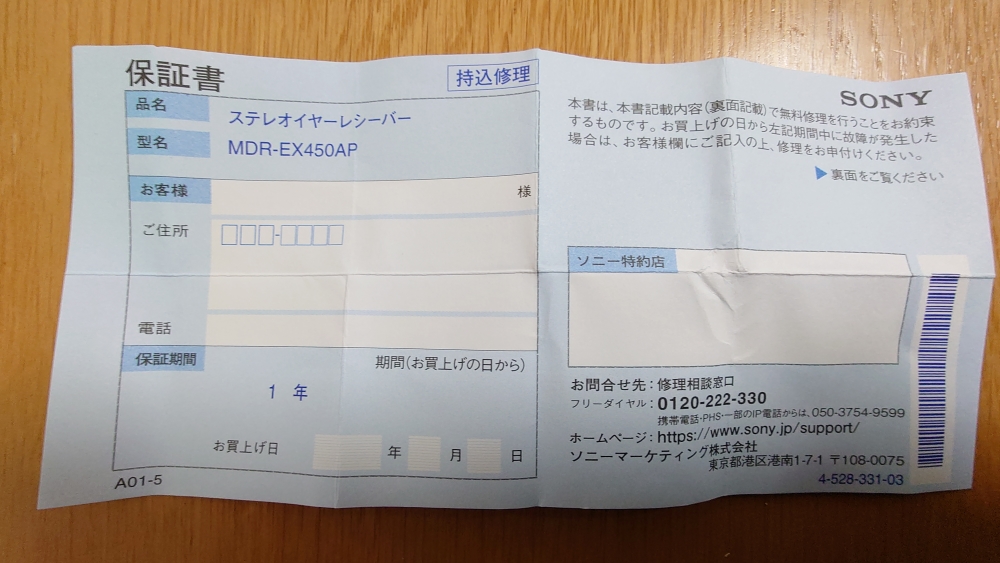 保証書
持込修理
品名
ステレオイヤーレシーバー
型名
MDR-EX450AP
お客様
様
ご住所
□□□-□□□□
電話
保証期間
期間(お買上げの日から)
1 年
お買上げ日 年 月 日
A01-5
SONY
本書は、本書記載内容(裏面記載)で無料修理を行うことをお約束
するものです。お買上げの日から左記期間中に故障が発生した
場合は、お客様欄にご記入の上、修理をお申付けください。
▶裏面をご覧ください
ソニー特約店
お問合せ先:修理相談窓口
フリーダイヤル:0120-222-330
携帯電話・PHS・一部のIP電話からは、050-3754-9599
ホームページ:https://www.sony.jp/support/
ソニーマーケティング株式会社
東京都港区港南1-7-1 〒108-0075
4-528-331-03